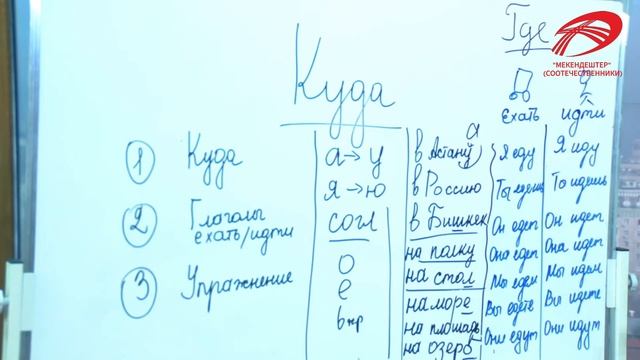 "МЕКЕНДЕШТЕР"
(СООТЕЧЕСТВЕННИКИ)
Где
Куда
ехать идти
1 Куда
2 Глаголы
ехать/идти
3 Упражнение
а→у
я→ю
согл
о
е
ь жр
а
в Астану
в Россию
в Бишкек
на полку
на стол
на море
на площадь
на озеро
Я еду
Ты едешь
Он едет
Она едет
Мы едем
Вы едете
Они едут
Я иду
То идешь
Он идет
Она идет
Мы идем
Вы идете
Они идут